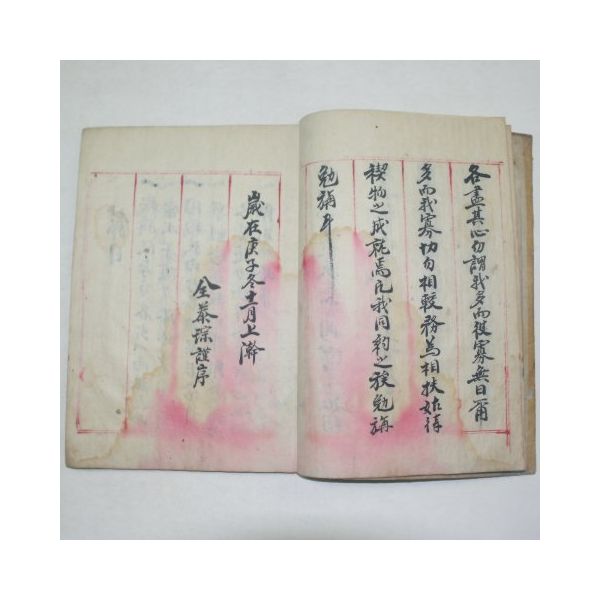 各盡其心勿謂我多而彼寡無曰爾
多而我寡切勿相較務爲相扶姑待
稧物之成就焉凡我同約之族勉旃
勉旃耳
歲在庚子冬十二月上澣
全恭琮謹序